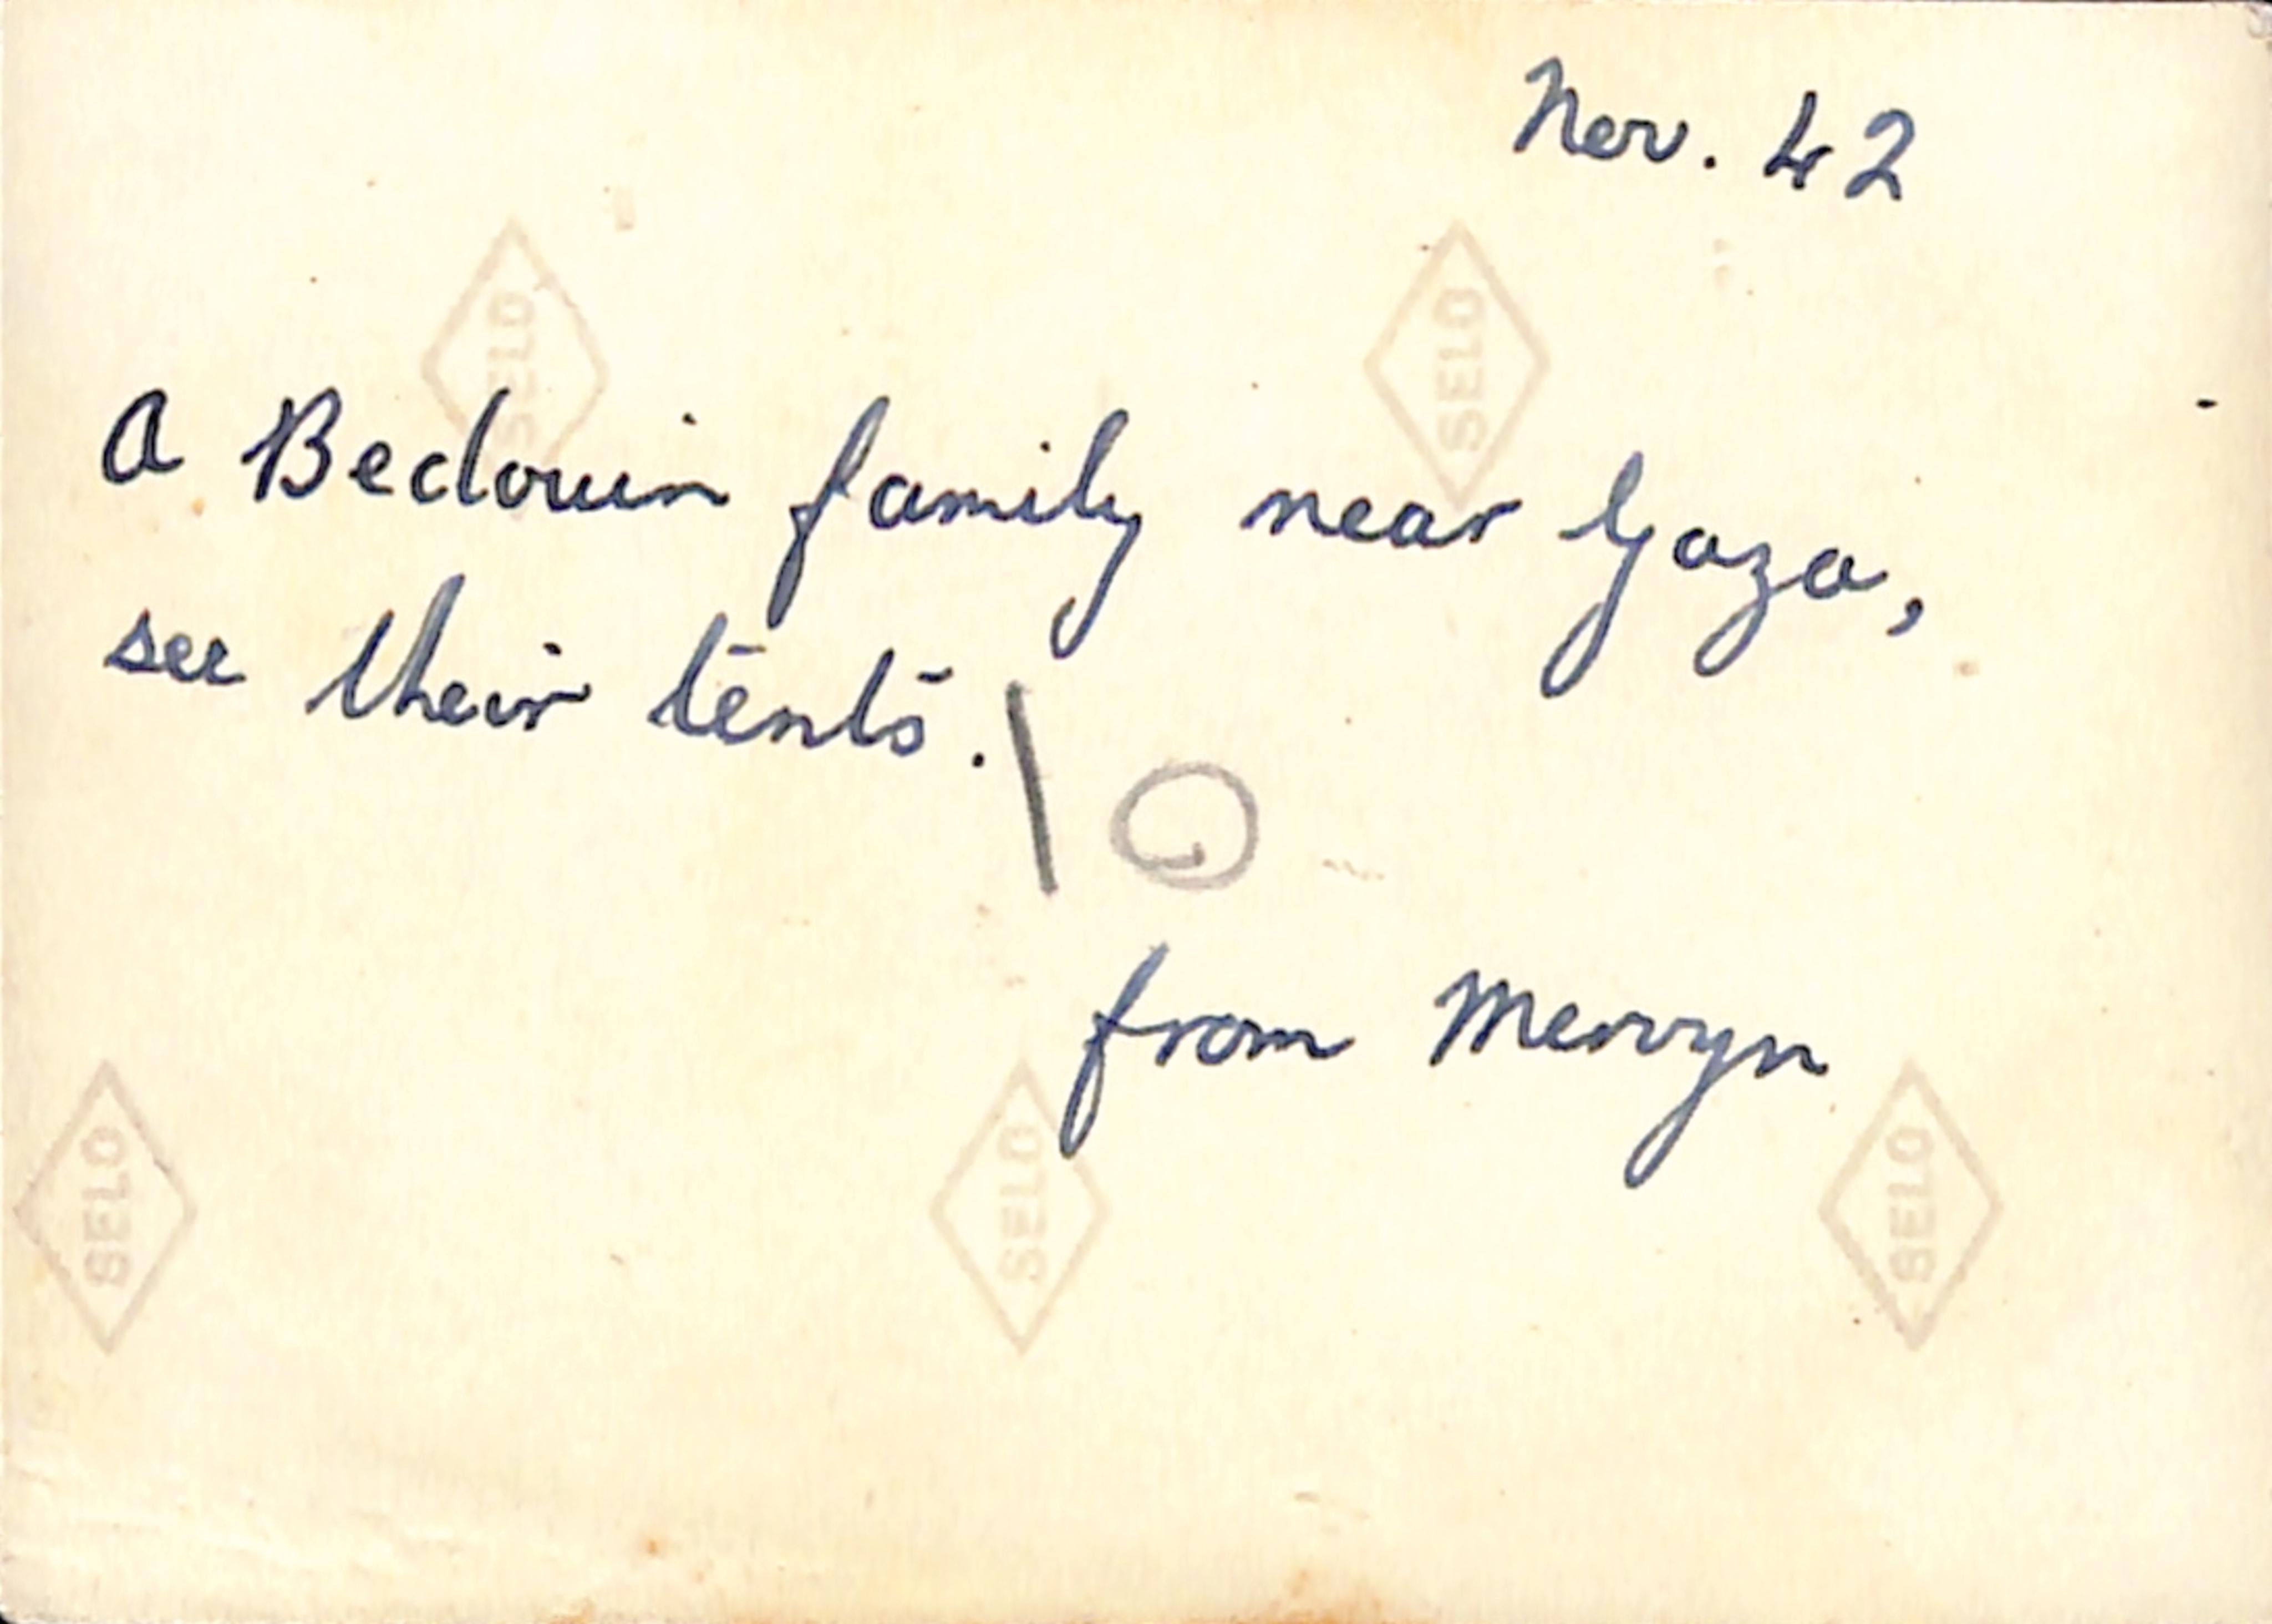 Nov. 42
SELO SELO
A Bedouin family near Gaza,
see their tents.
10
from Mervyn
SELO SELO SELO